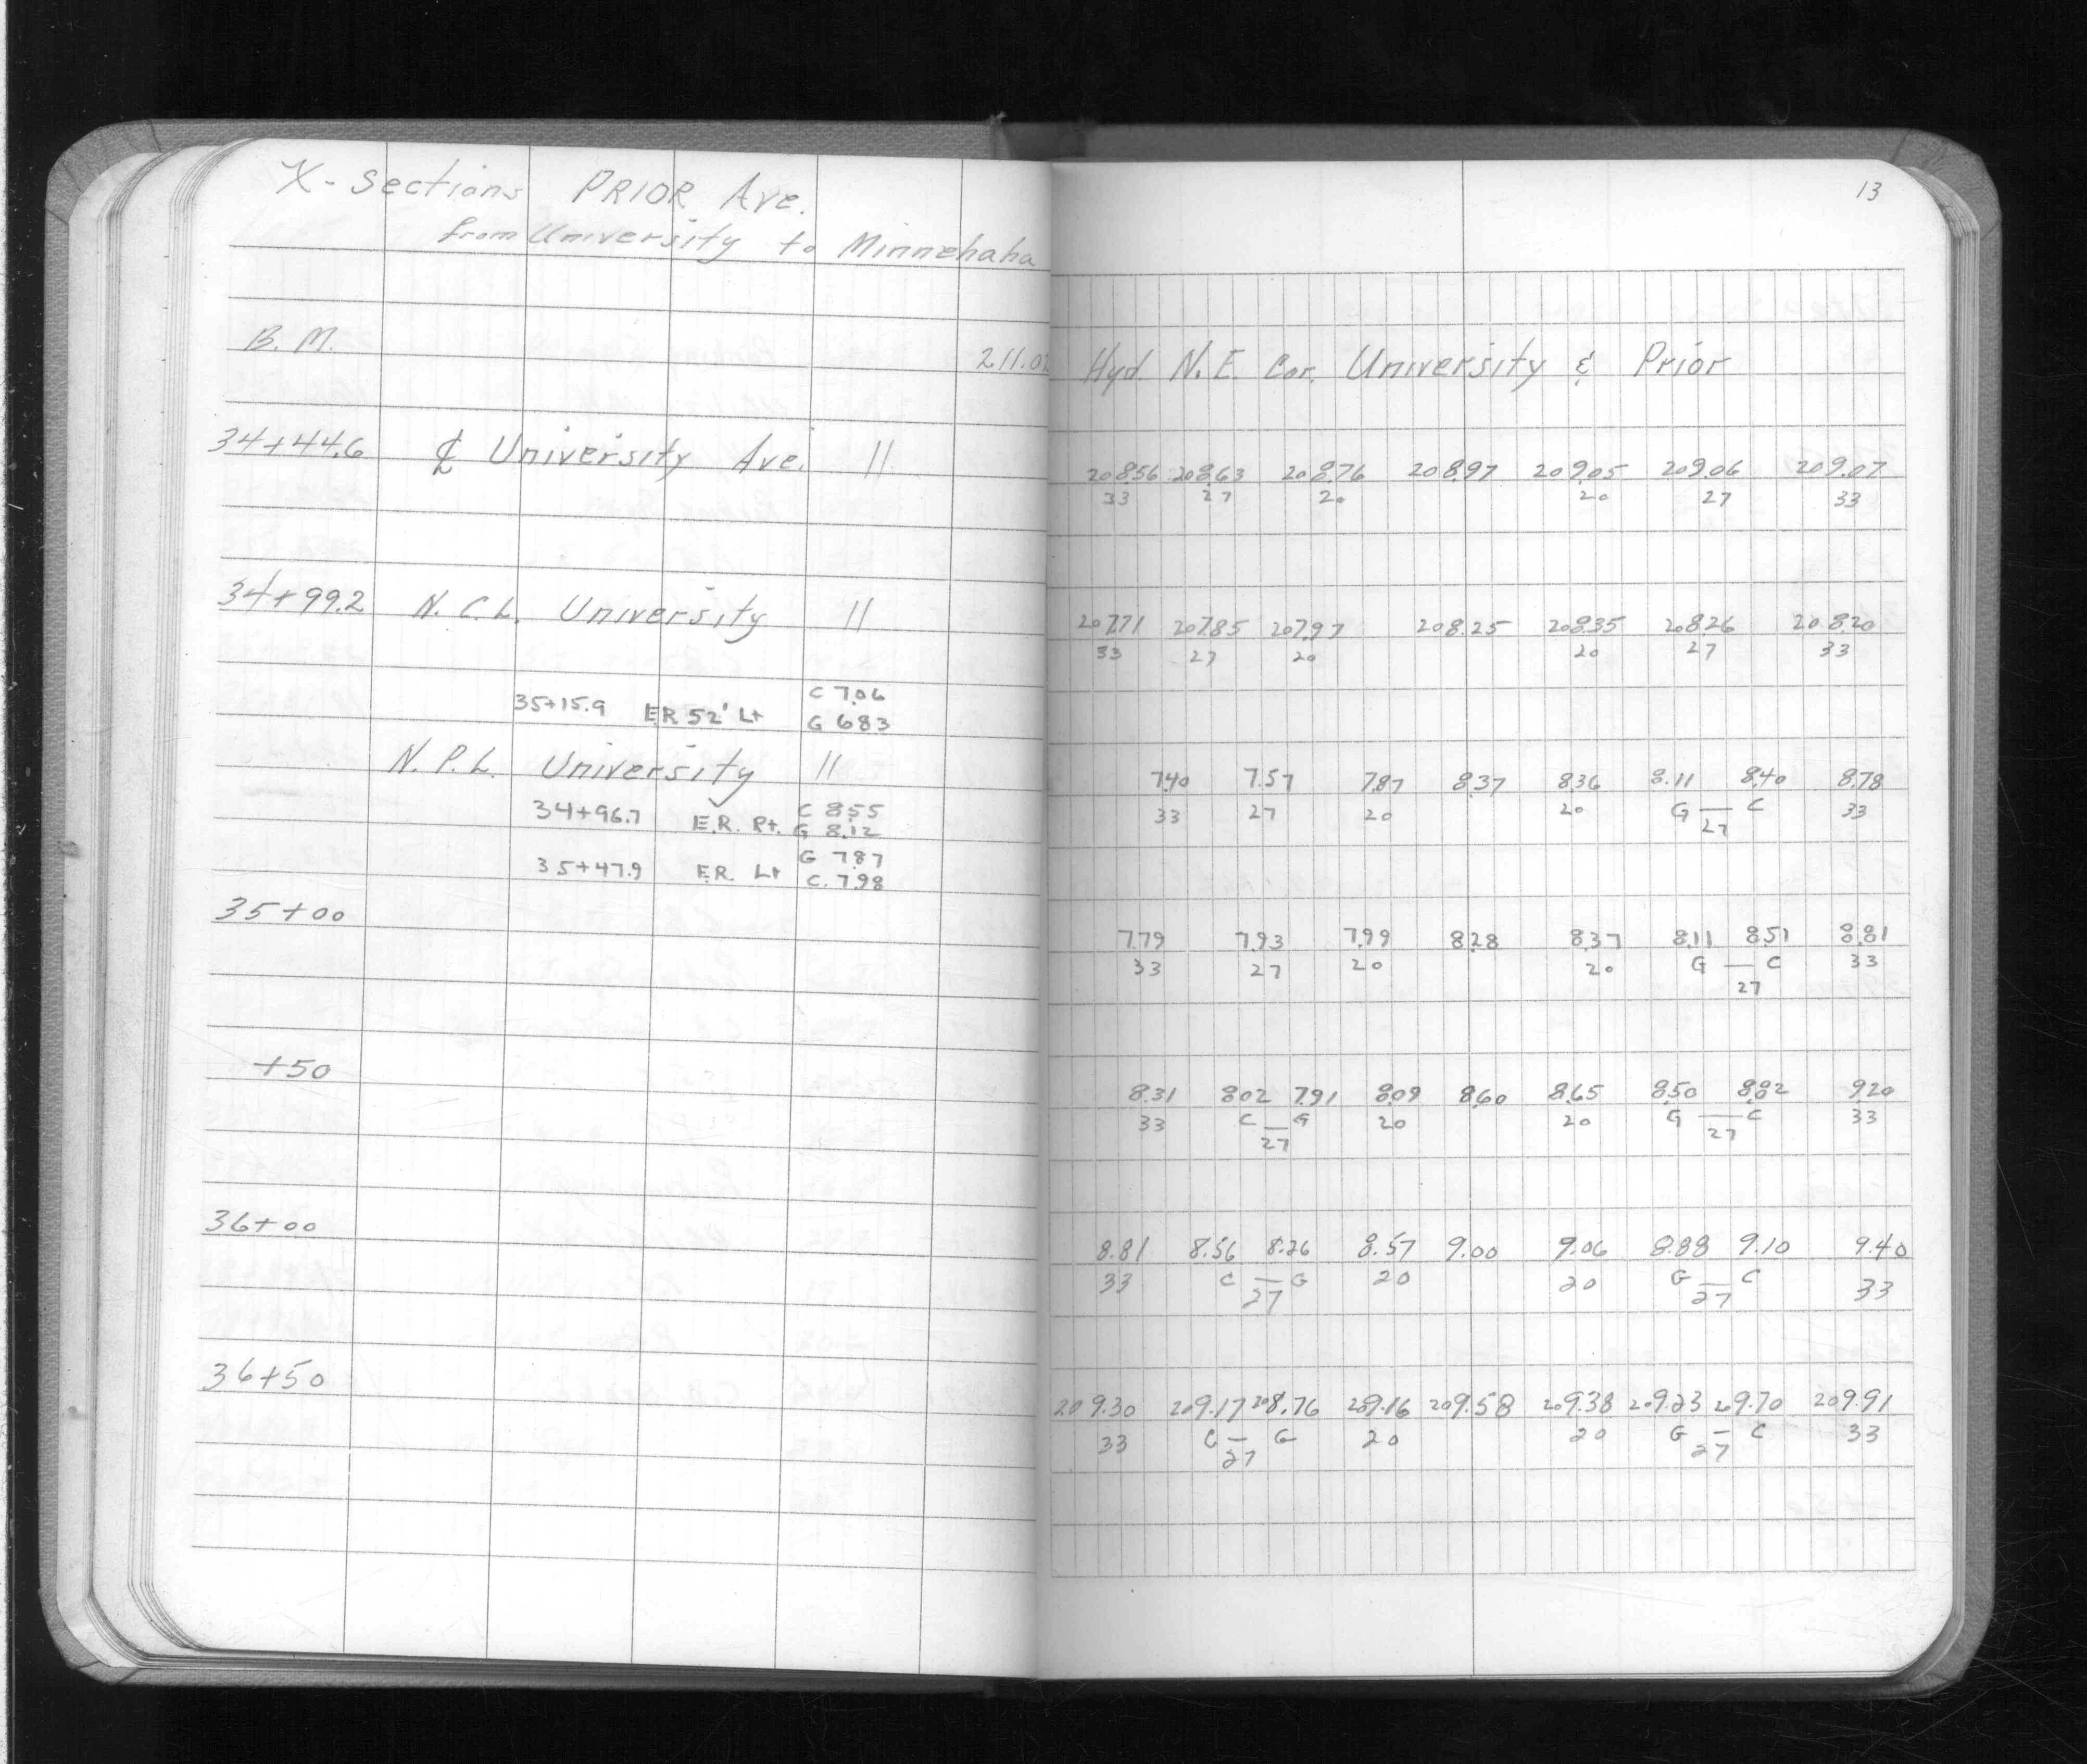 X-sections PRIOR Ave.
from University to Minnehaha
B.M. 211.02
34+44.6 ℄ University Ave. ||
34+99.2 N.C.L. University ||
35+15.9 ER 52' Lt C 7.06
G 6.83
N.P.L. University ||
34+96.7 E.R. Rt. C 8.55
G 8.12
35+47.9 E.R. Lt G 7.87
C. 7.98
35+00
+50
36+00
36+50
13
Hyd. N.E. Cor. University & Prior
208.56 208.63 208.76 208.97 209.05 209.06 209.07
33 27 20 20 27 33
207.71 207.85 207.97 208.25 208.35 208.26 208.20
33 27 20 20 27 33
7.40 7.57 7.87 8.37 8.36 8.11 8.40 8.78
33 27 20 20 G — C 33
27
7.79 7.93 7.99 8.28 8.37 8.11 8.51 8.81
33 27 20 20 G — C 33
27
8.31 8.02 7.91 8.09 8.60 8.65 8.50 8.82 9.20
33 C — G 20 20 G — C 33
27 27
8.81 8.56 8.26 8.57 9.00 9.06 8.88 9.10 9.40
33 C — G 20 20 G — C 33
27 27
209.30 209.17 208.76 209.16 209.58 209.38 209.23 209.70 209.91
33 C — G 20 20 G — C 33
27 27